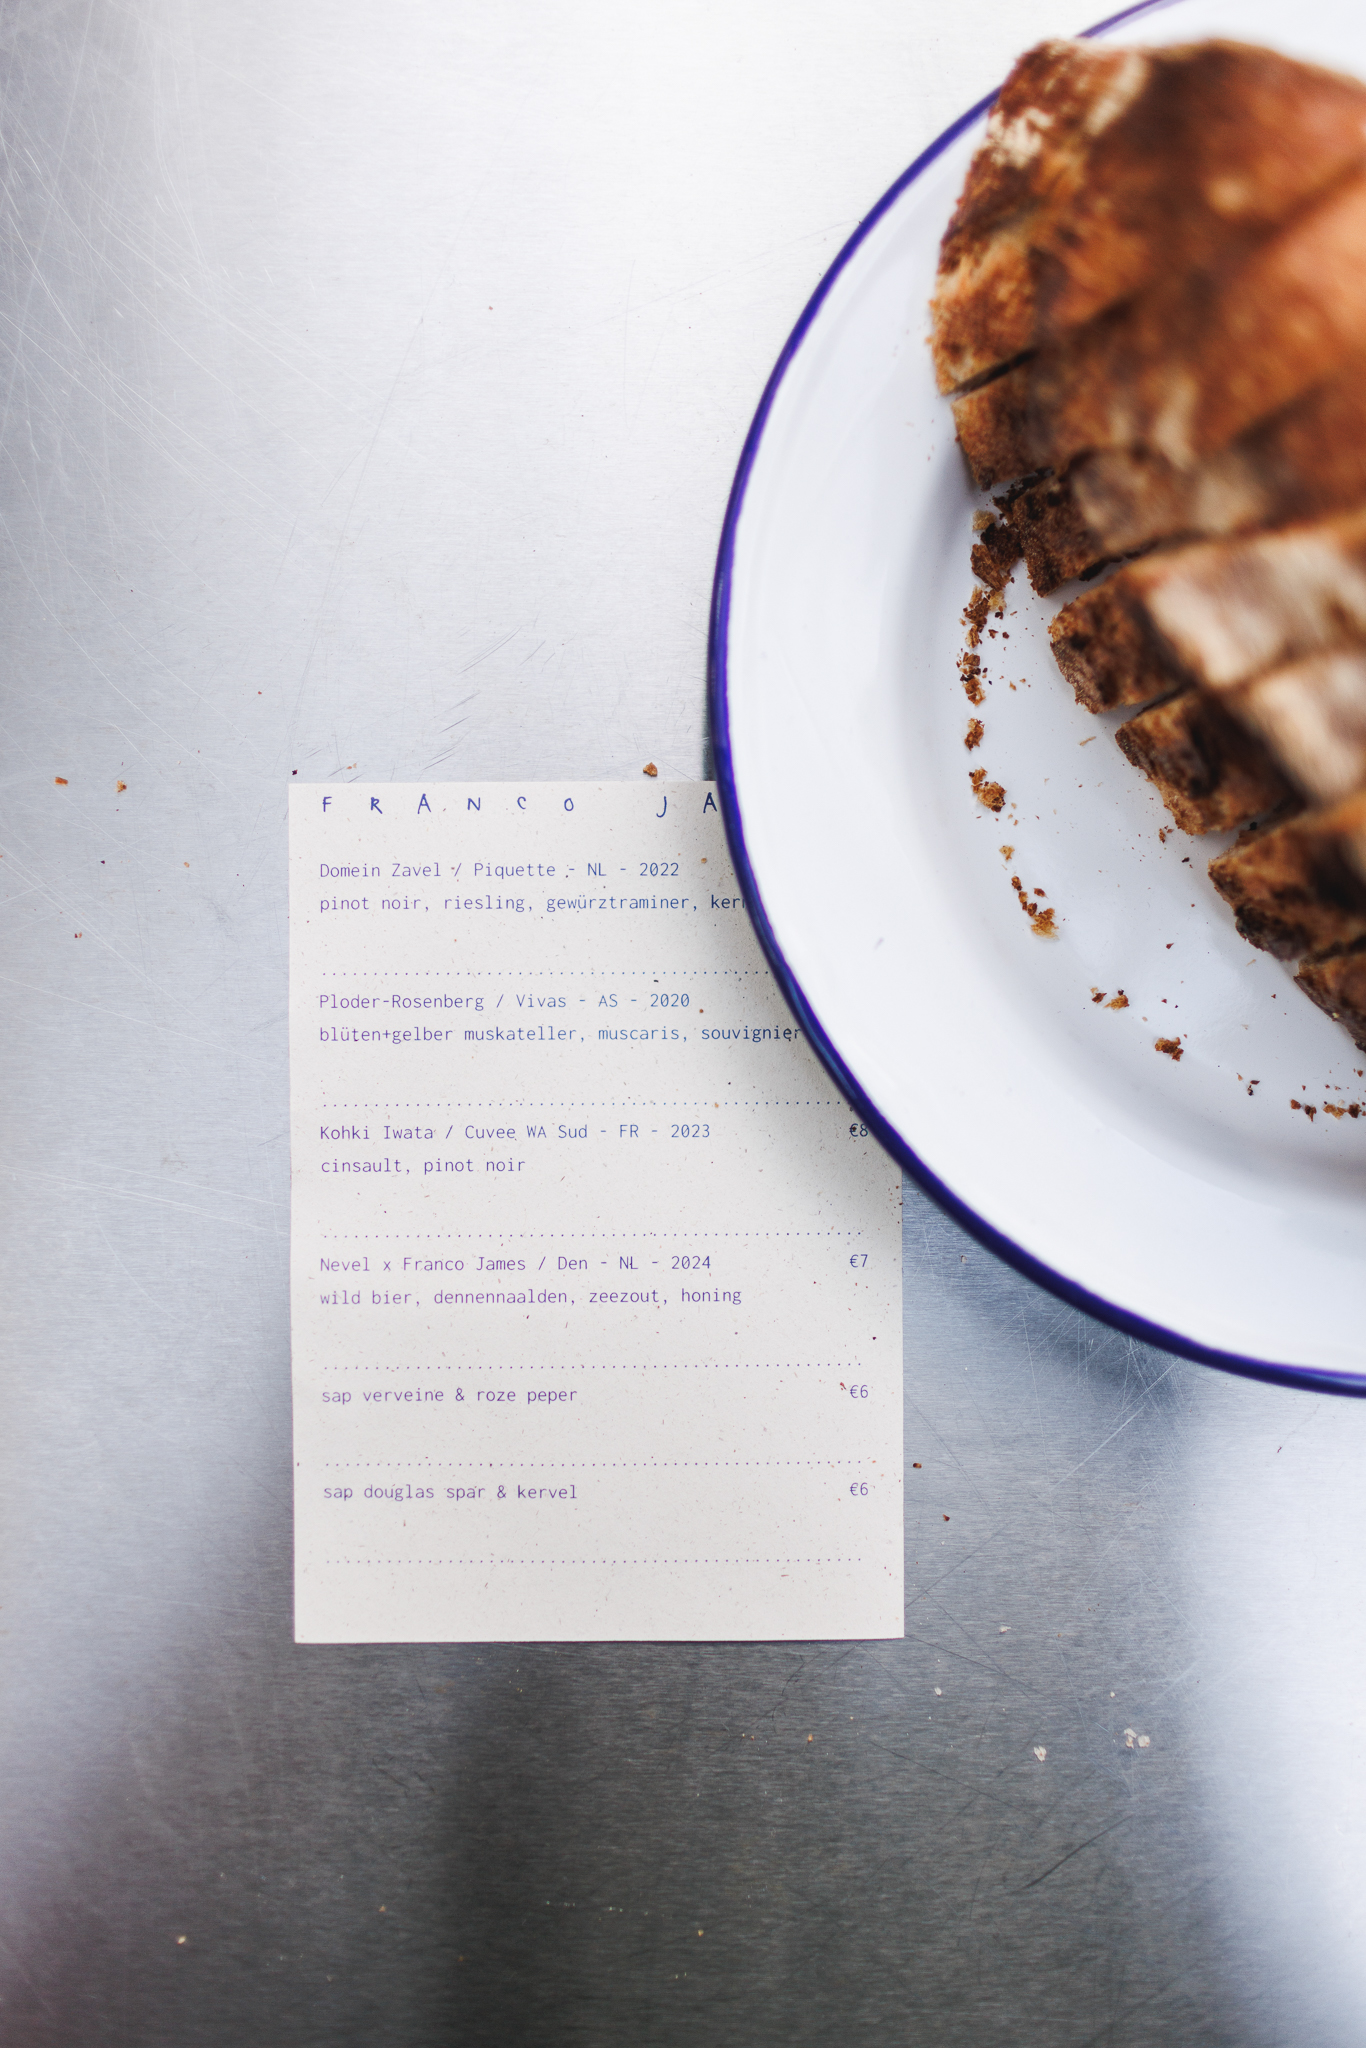 FRANCO JA
Domein Zavel / Piquette - NL - 2022
pinot noir, riesling, gewürztraminer,
Ploder-Rosenberg / Vivas - AS - 2020
blüten+gelber muskateller, muscaris, souvignier
Kohki Iwata / Cuvee WA Sud - FR - 2023 €8
cinsault, pinot noir
Nevel x Franco James / Den - NL - 2024 €7
wild bier, dennennaalden, zeezout, honing
sap verveine & roze peper €6
sap douglas spar & kervel €6